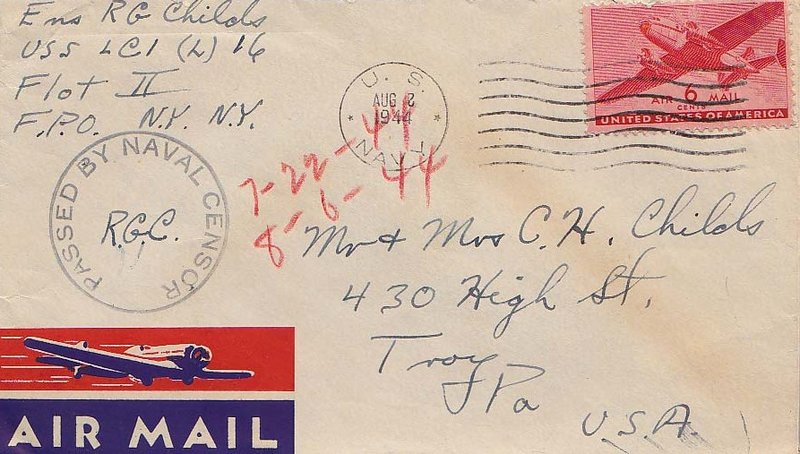 Ens RG Childs
USS LCI (L) 16
Flot II
F.P.O. N.Y. N.Y.
U. S.
AUG 2
1944
NAVY
AIR 6 MAIL
CENTS
UNITED STATES OF AMERICA
PASSED BY NAVAL CENSOR
R.G.C.
7-22-44
8-6-44
Mr & Mrs C. H. Childs
430 High St.
Troy
Pa
U.S.A.
AIR MAIL